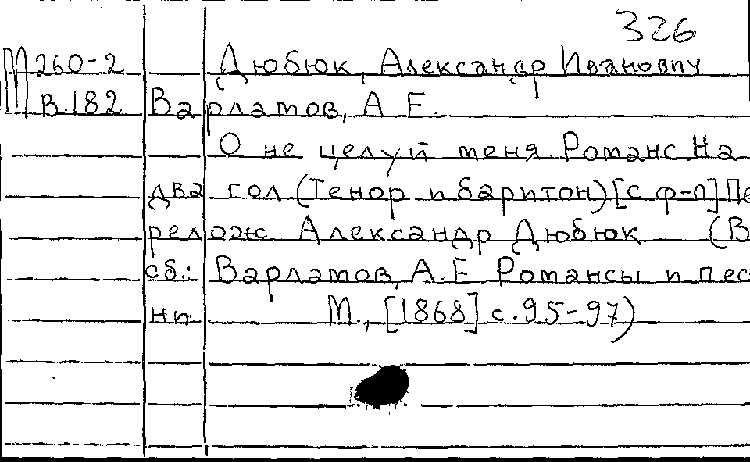 326
М 260-2 Дюбюк, Александр Иванович
В.182 Варламов, А Е.
О не целуй меня Романс На
два гол (Тенор и баритон) [с ф-п] Пе
релож Александр Дюбюк (В
сб.: Варламов, А.Е Романсы и пес
ни М., [1868] с.95-97)